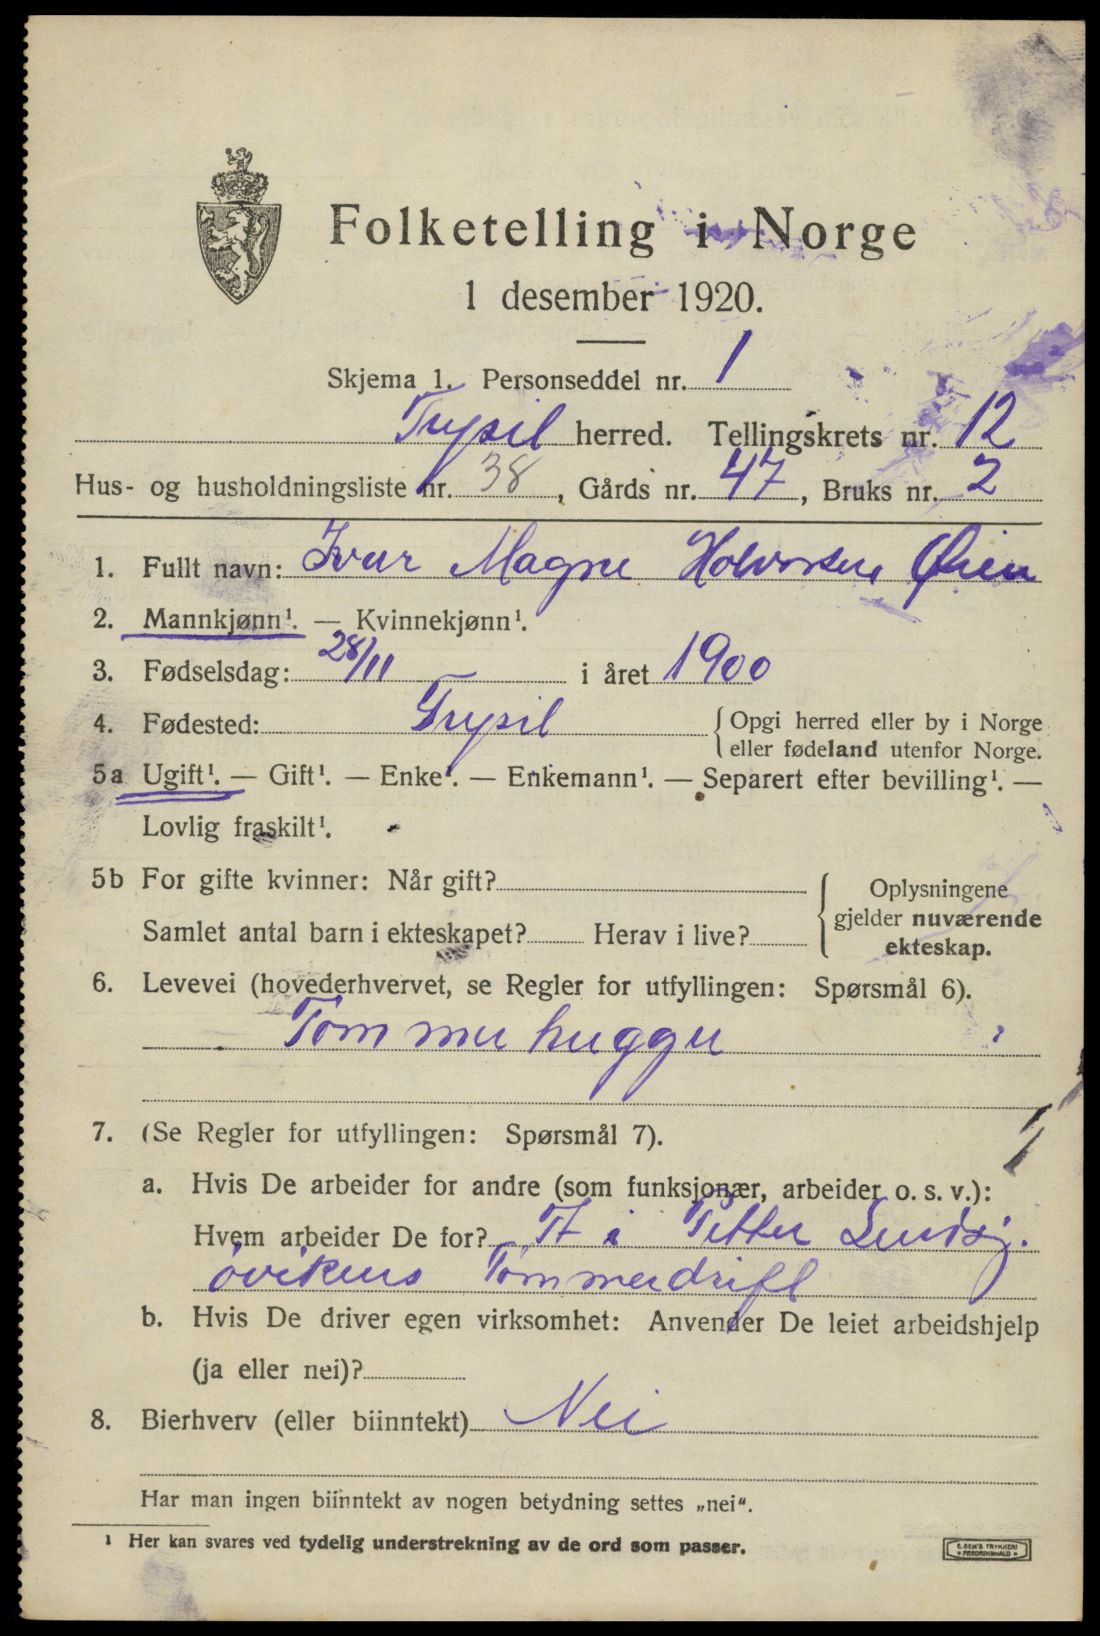 Folketelling i Norge
1 desember 1920.
Skjema 1. Personseddel nr. 1
Trysil herred. Tellingskrets nr. 12
Hus- og husholdningsliste nr. 38, Gårds nr. 47, Bruks nr. 2
1. Fullt navn: Ivar Magne Holvorsen Øien
2. Mannkjønn¹. — Kvinnekjønn¹.
3. Fødselsdag: 28/11 i året 1900
4. Fødested: Trysil {Opgi herred eller by i Norge
eller fødeland utenfor Norge.
5a Ugift¹. — Gift¹. — Enke¹. — Enkemann¹. — Separert efter bevilling¹. —
Lovlig fraskilt¹.
5b For gifte kvinner: Når gift?
Samlet antal barn i ekteskapet? Herav i live?
{Oplysningene
gjelder nuværende
ekteskap.
6. Levevei (hovederhvervet, se Regler for utfyllingen: Spørsmål 6).
Tømmerhugger
7. (Se Regler for utfyllingen: Spørsmål 7).
a. Hvis De arbeider for andre (som funksjonær, arbeider o. s. v.):
Hvem arbeider De for? i Petter
Tømmerdrift
b. Hvis De driver egen virksomhet: Anvender De leiet arbeidshjelp
(ja eller nei)?
8. Bierhverv (eller biinntekt) Nei
Har man ingen biinntekt av nogen betydning settes „nei“.
¹ Her kan svares ved tydelig understrekning av de ord som passer.
E. SEM'S TRYKKERI
• FREDRIKSHALD •